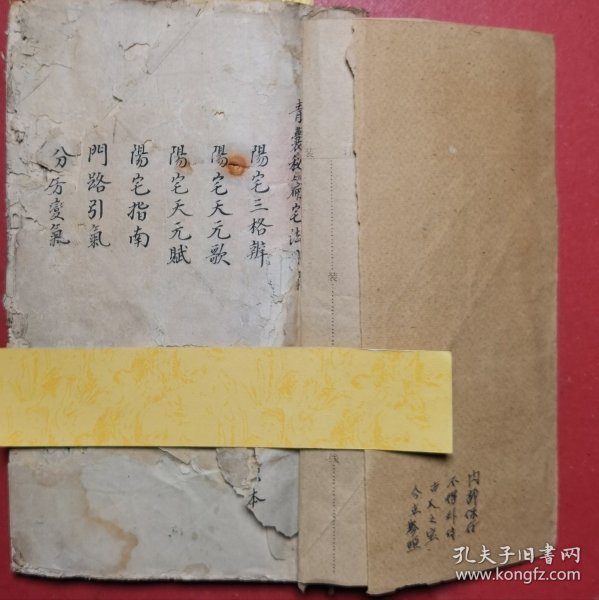 青囊
宅法
陽宅三格辨
陽宅天元歌
陽宅天元賦
陽宅指南
門路引氣
分房變氣
本
装
装
线
内部保存
不得外傳
古天之寶
今立參照
孔夫子旧书网
www.kongfz.com